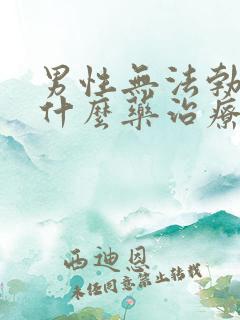 男性無法勃
什麼藥治療
西迪恩
未经同意禁止转载